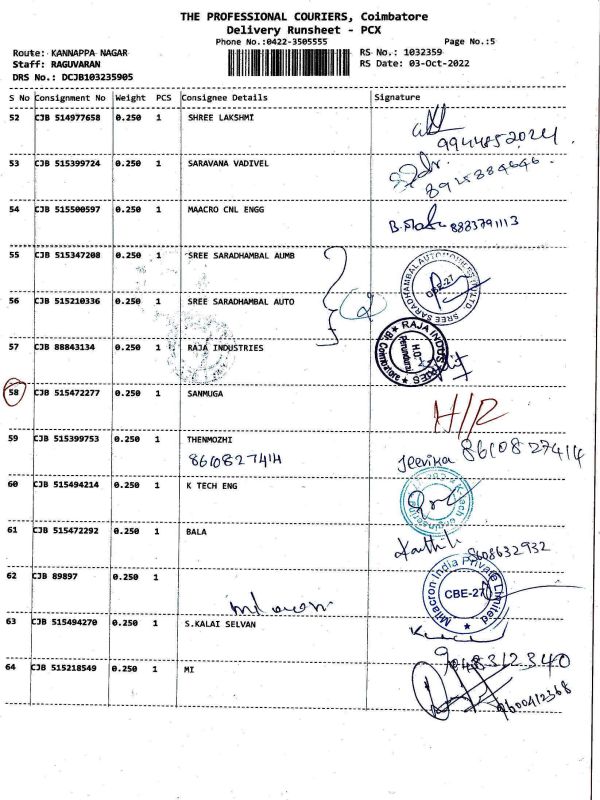 THE PROFESSIONAL COURIERS, Coimbatore
Delivery Runsheet - PCX
Phone No.:0422-3505555 Page No.:5
Route: KANNAPPA NAGAR RS No.: 1032359
Staff: RAGUVARAN RS Date: 03-Oct-2022
DRS No.: DCJB103235905
S No Consignment No Weight PCS Consignee Details Signature
52 CJB 514977658 0.250 1 SHREE LAKSHMI
9944852024
53 CJB 515399724 0.250 1 SARAVANA VADIVEL
8925884646.
54 CJB 515500597 0.250 1 MAACRO CNL ENGG
8883791113
55 CJB 515347208 0.250 1 SREE SARADHAMBAL AUMB
56 CJB 515210336 0.250 1 SREE SARADHAMBAL AUTO
CBE-27
57 CJB 88843134 0.250 1 RAJA INDUSTRIES
RAJA INDUSTRIES
H.O.
Perundurai
58 CJB 515472277 0.250 1 SANMUGA
H/R
59 CJB 515399753 0.250 1 THENMOZHI
8610827414 Jeevika 8610827414
60 CJB 515494214 0.250 1 K TECH ENG
61 CJB 515472292 0.250 1 BALA
8608632932
62 CJB 89897 0.250 1
Milacron India Private Limited
CBE-27
63 CJB 515494270 0.250 1 S.KALAI SELVAN
9048312340
64 CJB 515218549 0.250 1 MI
9600412368